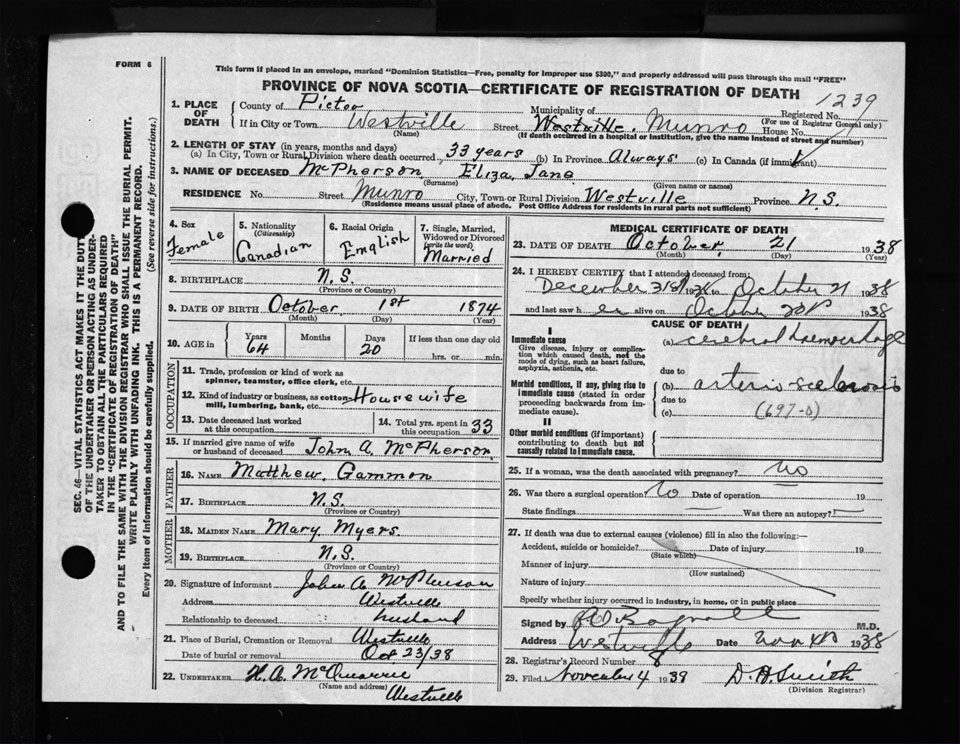 FORM 6
This form if placed in an envelope, marked "Dominion Statistics—Free, penalty for improper use $300," and properly addressed will pass through the mail "FREE"
PROVINCE OF NOVA SCOTIA—CERTIFICATE OF REGISTRATION OF DEATH
1239
1. PLACE OF DEATH
County of Pictou
Municipality of
Registered No.
(For use of Registrar General only)
If in City or Town Westville Street Westville. Munro House No.
(Name)
(If death occurred in a hospital or institution, give the name instead of street and number)
2. LENGTH OF STAY (in years, months and days)
(a) In City, Town or Rural Division where death occurred 33 years (b) In Province Always (c) In Canada (if immigrant)
3. NAME OF DECEASED McPherson Eliza Jane
(Surname) (Given name or names)
RESIDENCE No. Street Munro City, Town or Rural Division Westville Province N.S.
(Residence means usual place of abode. Post Office Address for residents in rural parts not sufficient)
4. Sex
Female
5. Nationality
(Citizenship)
Canadian
6. Racial Origin
English
7. Single, Married, Widowed or Divorced
(write the word)
Married
8. BIRTHPLACE N.S.
(Province or Country)
9. DATE OF BIRTH October 1st 1874
(Month) (Day) (Year)
10. AGE in
Years Months Days If less than one day old
64 20 hrs. or min.
OCCUPATION
11. Trade, profession or kind of work as spinner, teamster, office clerk, etc.
12. Kind of industry or business, as cotton mill, lumbering, bank, etc. Housewife
13. Date deceased last worked at this occupation
14. Total yrs. spent in this occupation 33
15. If married give name of wife or husband of deceased John A. McPherson
FATHER
16. NAME Matthew Gammon
17. BIRTHPLACE N.S.
(Province or Country)
MOTHER
18. MAIDEN NAME Mary Myers
19. BIRTHPLACE N.S.
(Province or Country)
20. Signature of informant John A McPherson
Address Westville
Relationship to deceased husband
21. Place of Burial, Cremation or Removal Westville
Date of burial or removal Oct 23/38
22. UNDERTAKER H. A. McQuarrie
(Name and address)
Westville
MEDICAL CERTIFICATE OF DEATH
23. DATE OF DEATH October 21 1938
(Month) (Day) (Year)
24. I HEREBY CERTIFY that I attended deceased from:
December 31st to October 21 1938
and last saw her alive on October 1938
CAUSE OF DEATH
I
Immediate cause
Give disease, injury or complication which caused death, not the mode of dying, such as heart failure, asphyxia, asthenia, etc.
(a) cerebral haemorrhage
due to
Morbid conditions, if any, giving rise to immediate cause (stated in order proceeding backwards from immediate).
(b) arterio-sclerosis
due to
(c) (697-0)
II
Other morbid conditions (if important) contributing to death but not causally related to immediate cause.
25. If a woman, was the death associated with pregnancy? no
26. Was there a surgical operation? no Date of operation 19
State findings Was there an autopsy?
27. If death was due to external causes (violence) fill in also the following:—
Accident, suicide or homicide? Date of injury 19
(State which)
Manner of injury
(How sustained)
Nature of injury
Specify whether injury occurred in industry, in home, or in public place
Signed by Bagnall M.D.
Address Westville Date Nov 1938
28. Registrar's Record Number 8
29. Filed November 4 1938 D. H. Smith
(Division Registrar)
SEC. 46—VITAL STATISTICS ACT MAKES IT THE DUTY
OF THE UNDERTAKER OR PERSON ACTING AS UNDER-
TAKER TO OBTAIN ALL THE PARTICULARS REQUIRED
IN THE "CERTIFICATE OF REGISTRATION OF DEATH"
AND TO FILE THE SAME WITH THE DIVISION REGISTRAR WHO SHALL ISSUE THE BURIAL PERMIT.
WRITE PLAINLY WITH UNFADING INK. THIS IS A PERMANENT RECORD.
Every item of information should be carefully supplied. (See reverse side for instructions.)